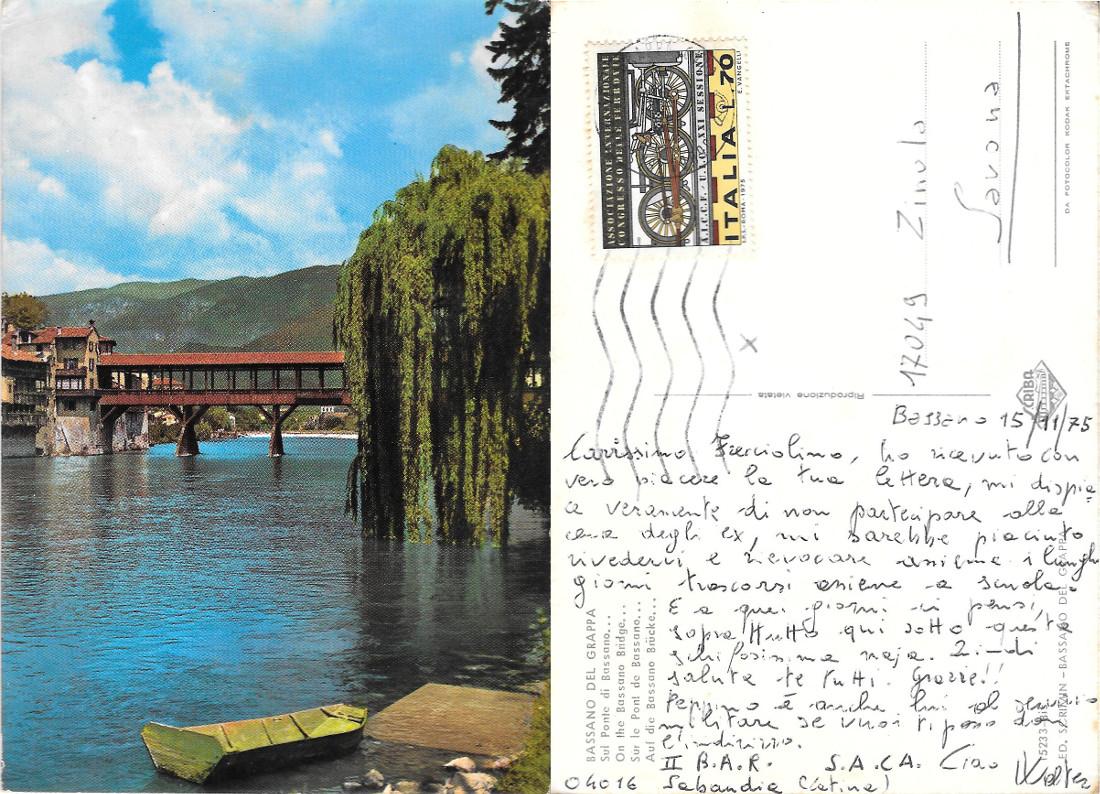 ASSOCIAZIONE INTERNAZIONALE
CONGRESSO DELLE FERROVIE
A.I.C.C.F. - U.I.C. XXI SESSIONE
ITALIA L. 70
I.P.S.-ROMA-1975
E. VANGELLI
17049 Zinolo
Savona
DA FOTOCOLOR KODAK EKTACHROME
Riproduzione vietata
SCRIBA
Bassano 15/11/75
Carissimo ho ricevuto con
vero piacere la tua lettera, mi dispia
ce veramente di non partecipare alla
cena degli ex, mi sarebbe piaciuto
rivedervi e rievocare assieme i lunghi
giorni trascorsi assieme a scuola.
E a quei giorni ci penso,
soprattutto qui sotto questa
schifosissima naja. Quindi
saluta te tutti. Grazie!!
Peppino è anche lui al servizio
militare se vuoi ti posso dare
l'indirizzo.
II B.A.R. S.A.C.A. Ciao Walter
04016 Sabaudia (Latina)
BASSANO DEL GRAPPA
Sul Ponte di Bassano...
On the Bassano Bridge...
Sur le Pont de Bassano...
Auf die Bassano Brücke...
BASSANO DEL GRAPPA